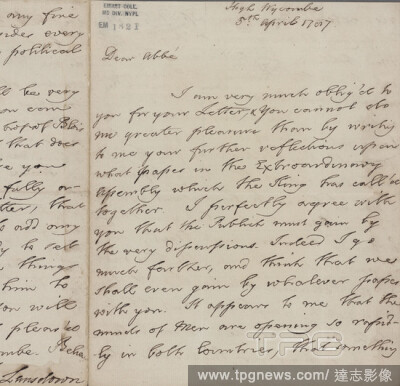 any fine
order every
political
EMMET COLL.
MS. DIV. N.Y.P.L.
High Wycombe
5th April 1787
Dear Abbé
I am very much oblig'd to
you for your Letter, & You cannot do
me greater pleasure than by writing
to me your further reflections upon
what passes in the Extraordinary
Assembly which the King has call'd
together. I perfectly agree with
you that the Publick must gain by
the very discussions. Indeed I go
much farther, and think that we
shall even gain by whatever passes
with you. It appears to me that the
minds of Men are opening so rapid-
ly in both Countries, that something
be very
you can
that does
you
fully or
that
add any
to set
things
him to
you will
pleased
Lansdown
TPG
www.tpgnews.com/ 達志影像